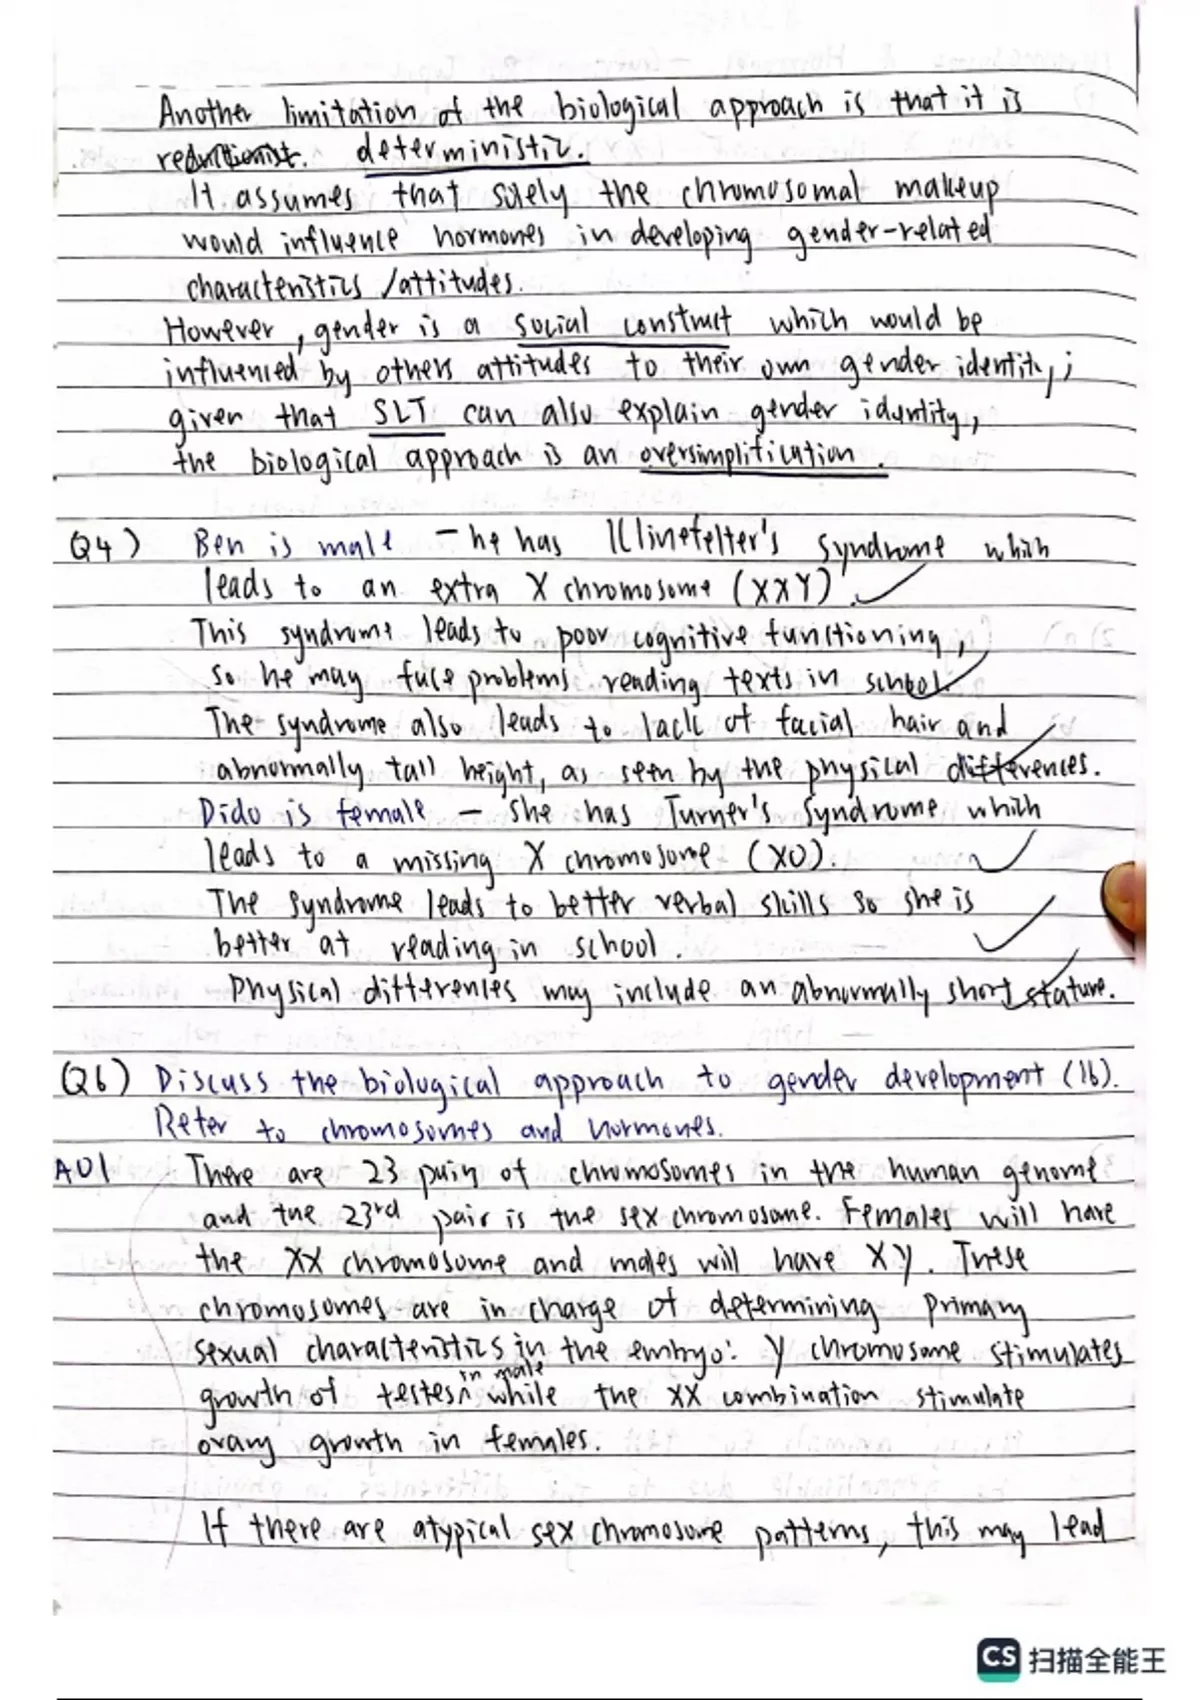 Another limitation of the biological approach is that it is
reductionist. deterministic.
It assumes that solely the chromosomal makeup
would influence hormones in developing gender-related
characteristics /attitudes.
However, gender is a social construct which would be
influenced by others attitudes to their own gender identity;
given that SLT can also explain gender identity,
the biological approach is an oversimplification.
Q4) Ben is male - he has Klinefelter's syndrome which
leads to an extra X chromosome (XXY).
This syndrome leads to poor cognitive functioning,
so he may face problems reading texts in school.
The syndrome also leads to lack of facial hair and
abnormally tall height, as seen by the physical differences.
Dido is female - she has Turner's Syndrome which
leads to a missing X chromosome (XO).
The syndrome leads to better verbal skills so she is
better at reading in school.
Physical differences may include an abnormally short stature.
Q6) Discuss the biological approach to gender development (16).
Refer to chromosomes and hormones.
AO1 There are 23 pairs of chromosomes in the human genome
and the 23rd pair is the sex chromosome. Females will have
the XX chromosome and males will have XY. These
chromosomes are in charge of determining primary
sexual characteristics in the embryo: Y chromosome stimulates
growth of testes in male while the XX combination stimulate
ovary growth in females.
If there are atypical sex chromosome patterns, this may lead
CS 扫描全能王